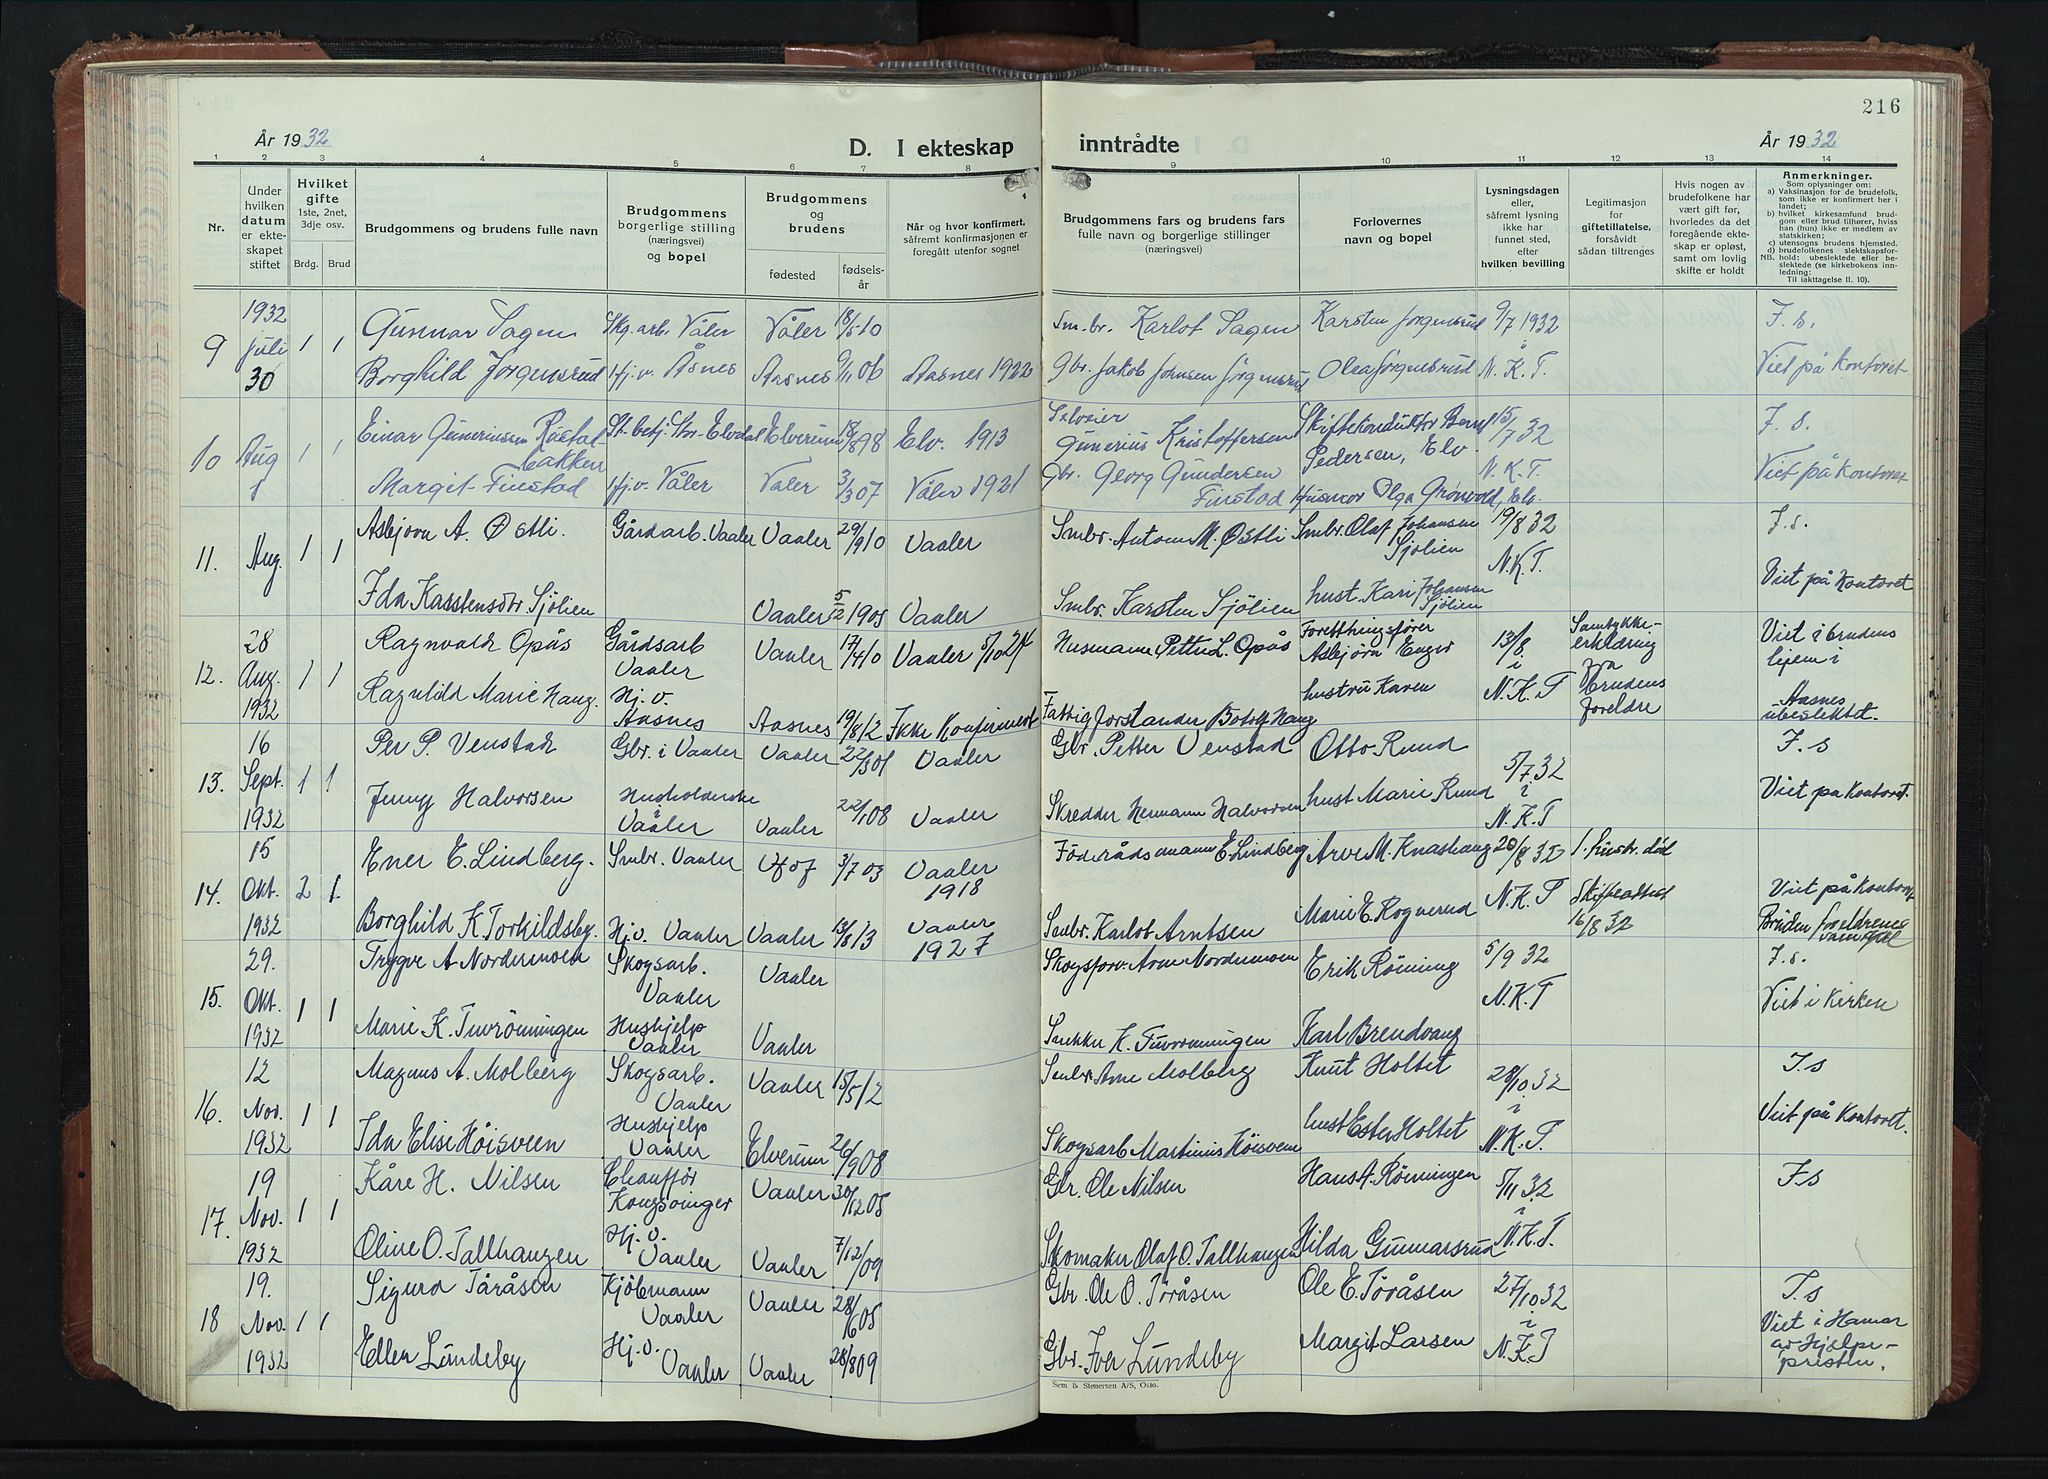 216
År 1932
D. I ekteskap inntrådte
År 1932
1 2 3 4 5 6 7 8 9 10 11 12 13 14
Nr.
Under hvilken datum er ekteskapet stiftet
Hvilket gifte
1ste, 2net, 3dje osv.
Brdg. Brud
Brudgommens og brudens fulle navn
Brudgommens borgerlige stilling (næringsvei) og bopel
Brudgommens og brudens
fødested
fødselsår
Når og hvor konfirmert, såfremt konfirmasjonen er foregått utenfor sognet
Brudgommens fars og brudens fars fulle navn og borgerlige stillinger (næringsvei)
Forlovernes navn og bopel
Lysningsdagen eller, såfremt lysning ikke har funnet sted, efter hvilken bevilling
Legitimasjon for giftetillatelse, forsåvidt sådan tiltrenges
Hvis nogen av brudefolkene har vært gift før, hvorledes da det foregående ekteskap er opløst, samt om lovlig skifte er holdt
Anmerkninger.
Som oplysninger om:
a) Vaksinasjon for de brudefolk, som ikke er konfirmert her i landet;
b) hvilket kirkesamfund brudgom eller brud tilhører, hviss han (hun) ikke er medlem av statskirken;
c) utensogns brudens hjemsted.
d) brudefolkenes slektskapsforhold: ubeslektede eller beslektede (se kirkebokens innledning:
NB. Til iakttagelse II. 10).
9 1932 juli 30 1 1
Gunnar Sagen Skg. arb. Våler Våler 18/5 10 Sm. br. Karlot Sagen Karsten Jørgensrud 9/7 1932 F. s.
Borghild Jørgensrud Hj. v. Åsnes Aasnes 9/11 06 Aasnes 1922 Gbr. Jakob Johnsen Jørgensrud Olea Jørgensrud N. K. T. Viet på kontoret
10 Aug 1 1
Einar Guneriussen Rastad bakken St. betj. Elverum 98 Elv. 1913 Gunerius Kristoffersen Skiftekonduktør Pedersen, Elv. 15/7 32 F. s.
Margit Finstad Hj. v. Våler Våler 3/3 07 Våler 1921 Gbr. Georg Gundersen Finstad Husmor Olga Grønvold, Elv. N. K. T. Viet på kontoret
11. Aug. 1 1
Asbjørn A. Østli. Gårdarb. Vaaler Vaaler 29/9 10 Vaaler Smbr. Antom M. Østli Smbr. Olaf Johansen Sjölien 19/8 32 F. s.
Ida Karstensdtr Sjölien Vaaler 5/2 1905 Vaaler Smbr. Karsten Sjölien hust. Kari Johansen Sjölien N.K.T. Viet på kontoret
12. 28 Aug. 1932 1 1
Ragnvald Opås Gårdsarb Vaaler Vaaler 17/4 10 Vaaler 5/10 24 Husmann Petter L. Opås Forretningsfører Asbjørn Enger 13/8 i Samtykke-erklæring fra Brudens foreldre Viet i brudens hjem i
Ragnhild Marie Haug. Hj. v. Aasnes Aasnes 19/8 12 Ikke konfirmert Fattigforstander Botolf Haug hustru Karen N. K. T Aasnes ubeslektet.
13. 16 Sept. 1932 1 1
Per P. Venstad Gbr. i Vaaler Vaaler 22/3 01 Vaaler Gbr. Petter Venstad Otto Ruud 5/7 32 i F. s
Jenny Halvorsen Husholderske Vaaler Vaaler 22/1 08 Vaaler Skredder Hermann Halvorsen hust Marie Ruud N. K. T Viet på kontoret.
14. 15 Okt. 1932 2 1.
Ener E. Lindberg. Smbr. Vaaler Hof 3/7 03 Vaaler 1918 Föderådsmann E. Lindberg Arve M. Knashaug 20/8 32 1. hustr. död Viet på kontoret
Borghild K. Torkildsby. Hj. v. Vaaler Vaaler 13/8 13 Vaaler 1927 Smbr. Karlot Arntsen Marie E. Rognerud N. K. T Skifteattest 16/8 32 Bruden foreldrenes samtykke
15. 29. Okt. 1932 1 1
Trygve A. Nordermoen Skogsarb. Vaaler Vaaler Skogsforv. Arne Nordermoen Erik Rönning 5/9 32 F. s.
Marie K. Furrönningen Hushjelp Vaaler Vaaler Snekker K. Furrönningen Karl Brendvang N. K. T Viet i kirken
16. 12 Nov. 1932 1 1
Magnus A. Molberg Skogsarb. Vaaler Vaaler 15/5 12 Smbr. Arne Molberg Knut Holtet 28/10 32 i F. s
Ida Elise Höisveen Hushjelp Vaaler Elverum 26/9 08 Skogsarb Martinus Höisveen hust Ester Holtet N. K. T. Viet på kontoret.
17. 19 Nov. 1932 1 1
Kåre H. Nilsen Chauffør Kongsvinger Vaaler 30/12 05 Gbr. Ole Nilsen Hans A. Rönningen 5/11 32 i F. s
Oline O. Tallhaugen Hj. v. Vaaler Vaaler 7/12/09 Skomaker Olaf O. Tallhaugen Hilda Gunnarsrud N. K. T.
18 19. Nov. 1932 1 1
Sigurd Töråsen Kjöbmann Vaaler Vaaler 28/6 05 Gbr. Ole O. Töråsen Ole E. Töråsen 27/10 32 i F. s
Ellen Lundeby Hj. v. Vaaler Vaaler 28/8 09 Gbr. Iver Lundeby Margit Larsen N. K. T Viet i Hamar av Hjelpe-presten.
Sem & Stenersen A/S, Oslo.